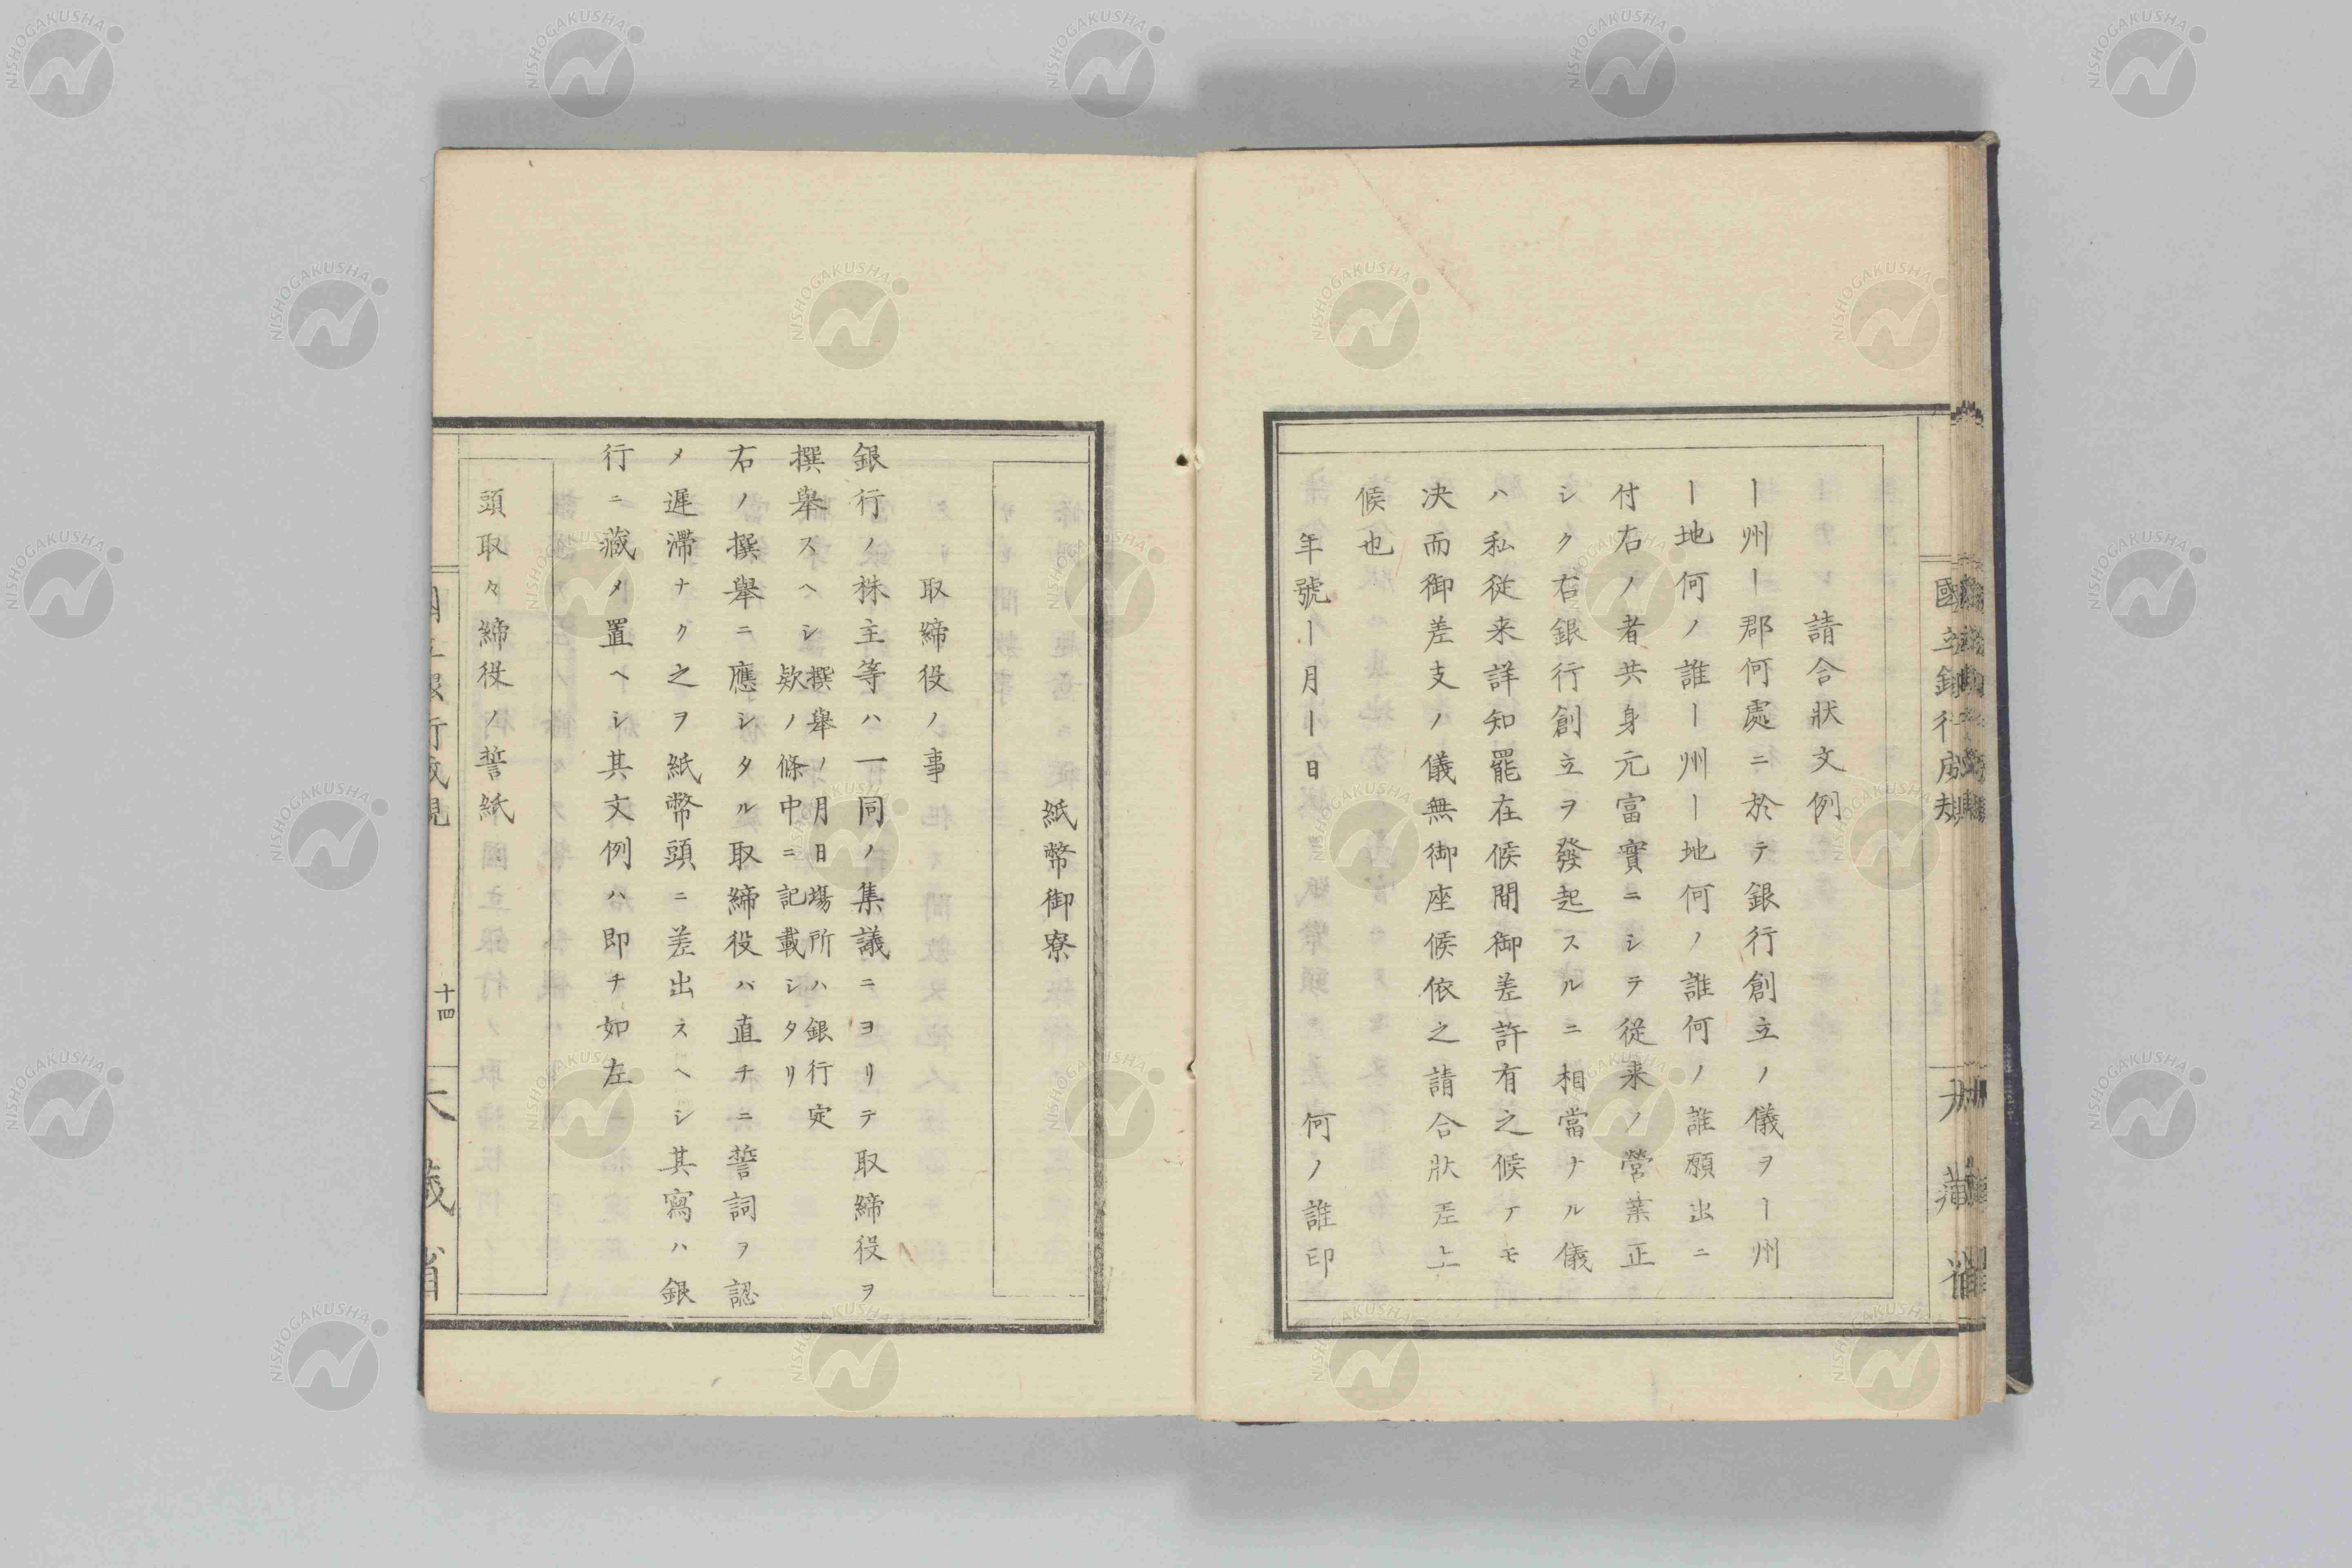 請合狀文例
ー州ー郡何處ニ於テ銀行創立ノ儀ヲー州
ー地何ノ誰ー州ー地何ノ誰何ノ誰願出ニ
付右ノ者共身元富實ニシテ從来ノ營業正
シク右銀行創立ヲ發起スルニ相當ナル儀
ハ私從来詳知罷在候間御差許有之候テモ
决而御差支ノ儀無御座候依之請合狀差上
候也
年號ー月ー日 何ノ誰印
紙幣御寮
取締役ノ事
銀行ノ株主等ハ一同ノ集議ニヨリテ取締役ヲ
撰擧スヘシ
撰擧ノ月日塲所ハ銀行定
欵ノ條中ニ記載シタリ
右ノ撰擧ニ應シタル取締役バ直チニ誓詞ヲ認
メ遲滯ナク之ヲ紙幣頭ニ差出スヘシ其寫ハ銀
行ニ藏メ置ヘシ其文例ハ即チ如左
十四
頭取々締役ノ誓紙
NISHOGAKUSHA